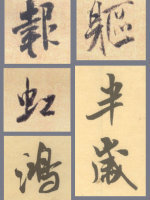 軀
半歲
報
虹
鴻